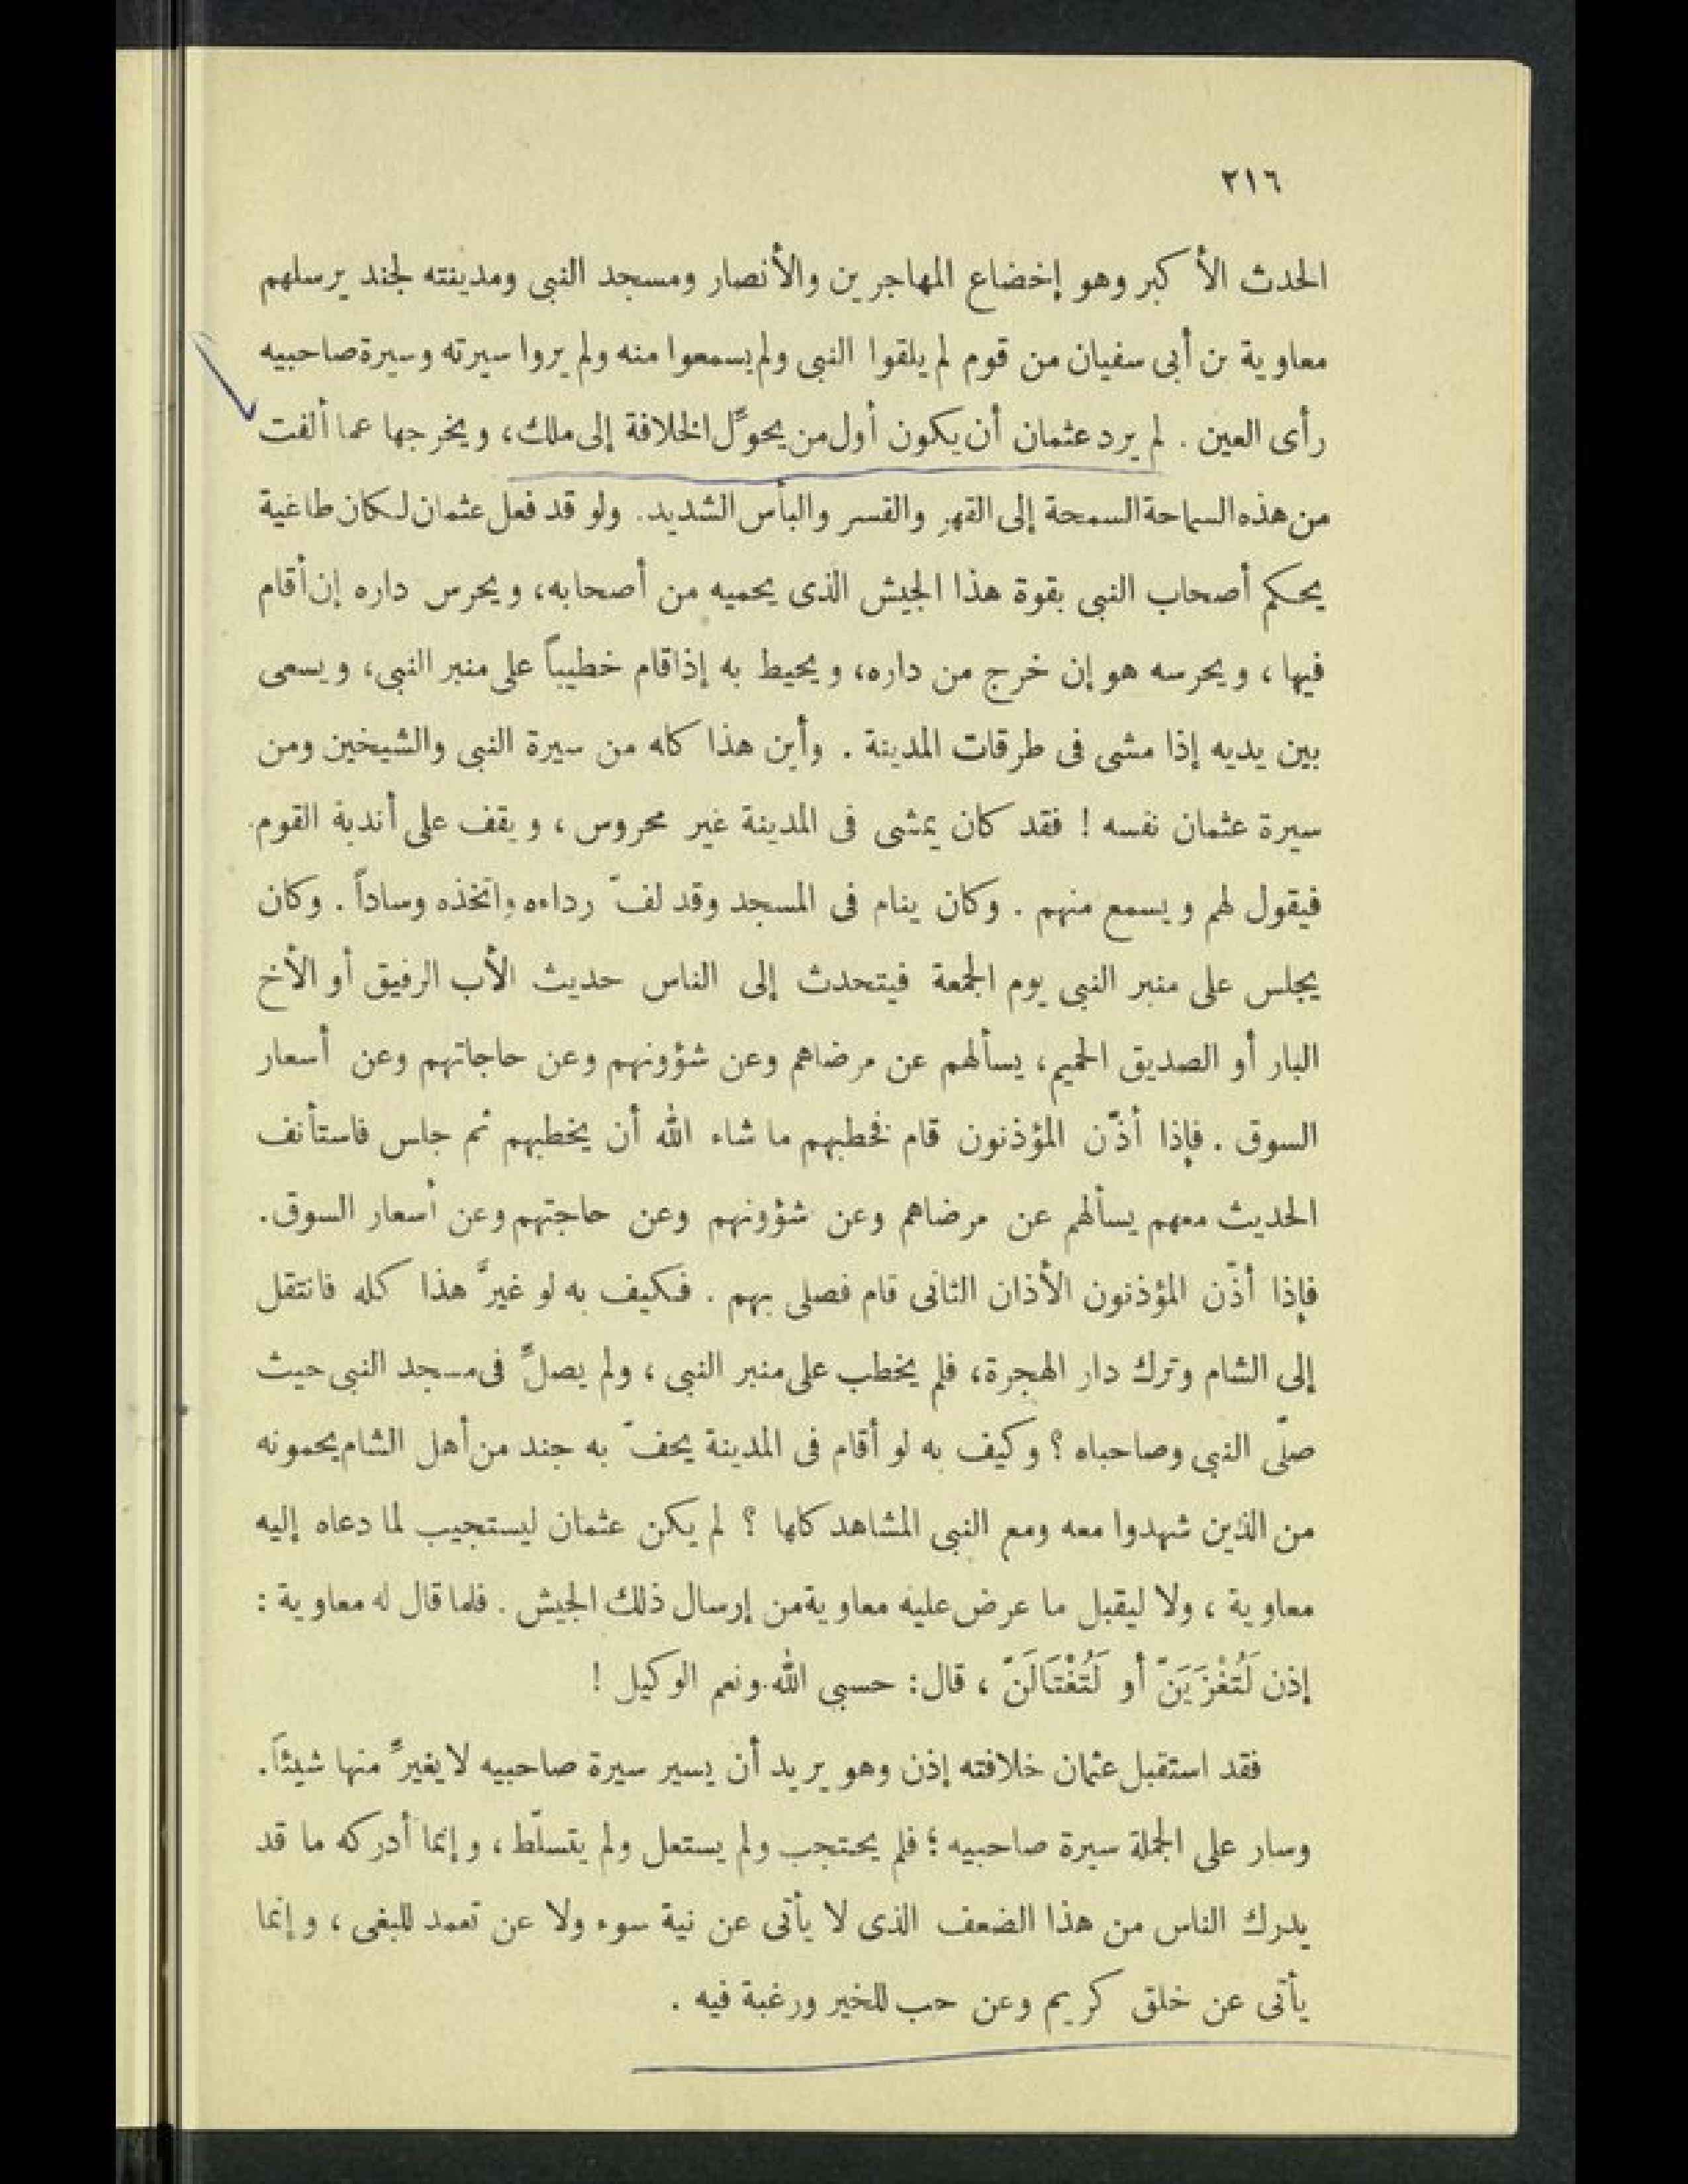 ٢١٦
الحدث الأكبر وهو إخضاع المهاجرين والأنصار ومسجد النبى ومدينته لجند يرسلهم
معاوية بن أبى سفيان من قوم لم يلقوا النبى ولم يسمعوا منه ولم يروا سيرته وسيرة صاحبيه
رأى العين . لم يرد عثمان أن يكون أول من يحوِّل الخلافة إلى ملك، ويخرجها عما ألفت
من هذه السماحة السمحة إلى القهر والقسر والبأس الشديد. ولو قد فعل عثمان لكان طاغية
يحكم أصحاب النبى بقوة هذا الجيش الذى يحميه من أصحابه، ويحرس داره إن أقام
فيها ، ويحرسه هو إن خرج من داره، ويحيط به إذا قام خطيباً على منبر النبى، ويسعى
بين يديه إذا مشى فى طرقات المدينة . وأين هذا كله من سيرة النبى والشيخين ومن
سيرة عثمان نفسه ! فقد كان يمشى فى المدينة غير محروس ، ويقف على أندية القوم
فيقول لهم ويسمع منهم . وكان ينام فى المسجد وقد لفّ رداءه واتخذه وساداً . وكان
يجلس على منبر النبى يوم الجمعة فيتحدث إلى الناس حديث الأب الرفيق أو الأخ
البار أو الصديق الحميم، يسألهم عن مرضاهم وعن شؤونهم وعن حاجاتهم وعن أسعار
السوق . فإذا أذّن المؤذنون قام فخطبهم ما شاء الله أن يخطبهم ثم جلس فاستأنف
الحديث معهم يسألهم عن مرضاهم وعن شؤونهم وعن حاجتهم وعن أسعار السوق.
فإذا أذّن المؤذنون الأذان الثانى قام فصلى بهم . فكيف به لو غيَّر هذا كله فانتقل
إلى الشام وترك دار الهجرة، فلم يخطب على منبر النبى ، ولم يصلِّ فى مسجد النبى حيث
صلّى النبى وصاحباه ؟ وكيف به لو أقام فى المدينة يحفّ به جند من أهل الشام يحمونه
من الذين شهدوا معه ومع النبى المشاهد كلها ؟ لم يكن عثمان ليستجيب لما دعاه إليه
معاوية ، ولا ليقبل ما عرض عليه معاوية من إرسال ذلك الجيش . فلما قال له معاوية :
إذن لَتُغْزَيَنّ أو لَتُغْتَالَنّ ، قال: حسبى الله ونعم الوكيل !
فقد استقبل عثمان خلافته إذن وهو يريد أن يسير سيرة صاحبيه لا يغيِّر منها شيئاً.
وسار على الجملة سيرة صاحبيه ؛ فلم يحتجب ولم يستعل ولم يتسلّط ، وإنما أدركه ما قد
يدرك الناس من هذا الضعف الذى لا يأتى عن نية سوء ولا عن تعمد للبغى ، وإنما
يأتى عن خلق كريم وعن حب للخير ورغبة فيه .